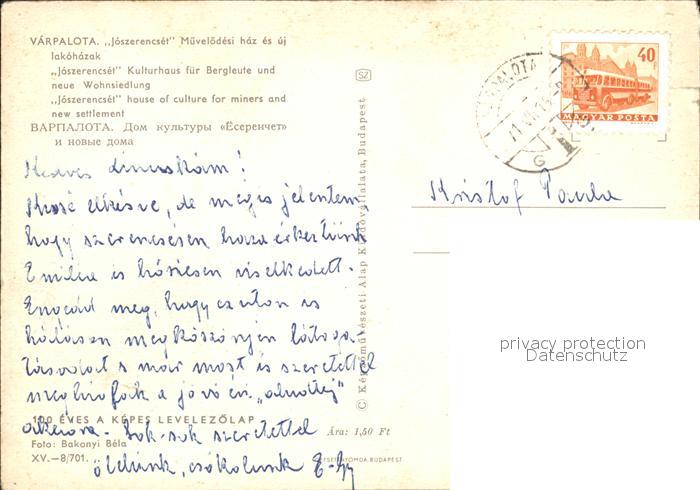 VÁRPALOTA. „Jószerencsét" Művelődési ház és új
lakóházak
„Jószerencsét" Kulturhaus für Bergleute und
neue Wohnsiedlung
„Jószerencsét" house of culture for miners and
new settlement
ВАРПАЛОТА. Дом культуры «Ёсеренчет»
и новые дома
Kedves
Kissé elkésve, de mégis jelentem
hogy szerencsésen haza érkeztünk
és hősiesen viselkedett.
Engedd meg, hogy ezúton is
hálásan megköszönjem látoga-
tásodat s már most is szeretettel
a jövő évi
100 ÉVES A KÉPES LEVELEZŐLAP
Sok-sok szeretettel
Ára: 1,50 Ft
Foto: Bakonyi Béla
XV.—8/701.
ölelünk, csókolunk
BUDAPEST
SZ
© Képzőművészeti Alap Kiadóvállalata, Budapest
VÁRPALOTA
71
G
40
MAGYAR POSTA
Kristóf
privacy protection
Datenschutz